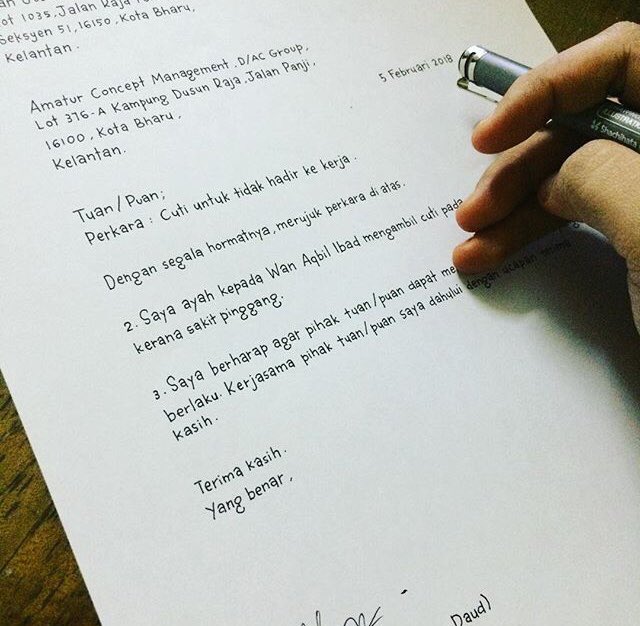 Lot 1035, Jalan Raja
Seksyen 51, 16150, Kota Bharu,
Kelantan.
Amatur Concept Management, D/AC Group,
Lot 376-A Kampung Dusun Raja, Jalan Panji,
16100, Kota Bharu,
Kelantan.
5 Februari 2018
Tuan/Puan;
Perkara : Cuti untuk tidak hadir ke kerja.
Dengan segala hormatnya, merujuk perkara di atas.
2. Saya ayah kepada Wan Aqbil Ibad mengambil cuti pada
kerana sakit pinggang.
3. Saya berharap agar pihak tuan/puan dapat
berlaku. Kerjasama pihak tuan/puan saya dahului dengan ucapan terima
kasih.
Terima kasih.
Yang benar,
Daud)
Shachihata